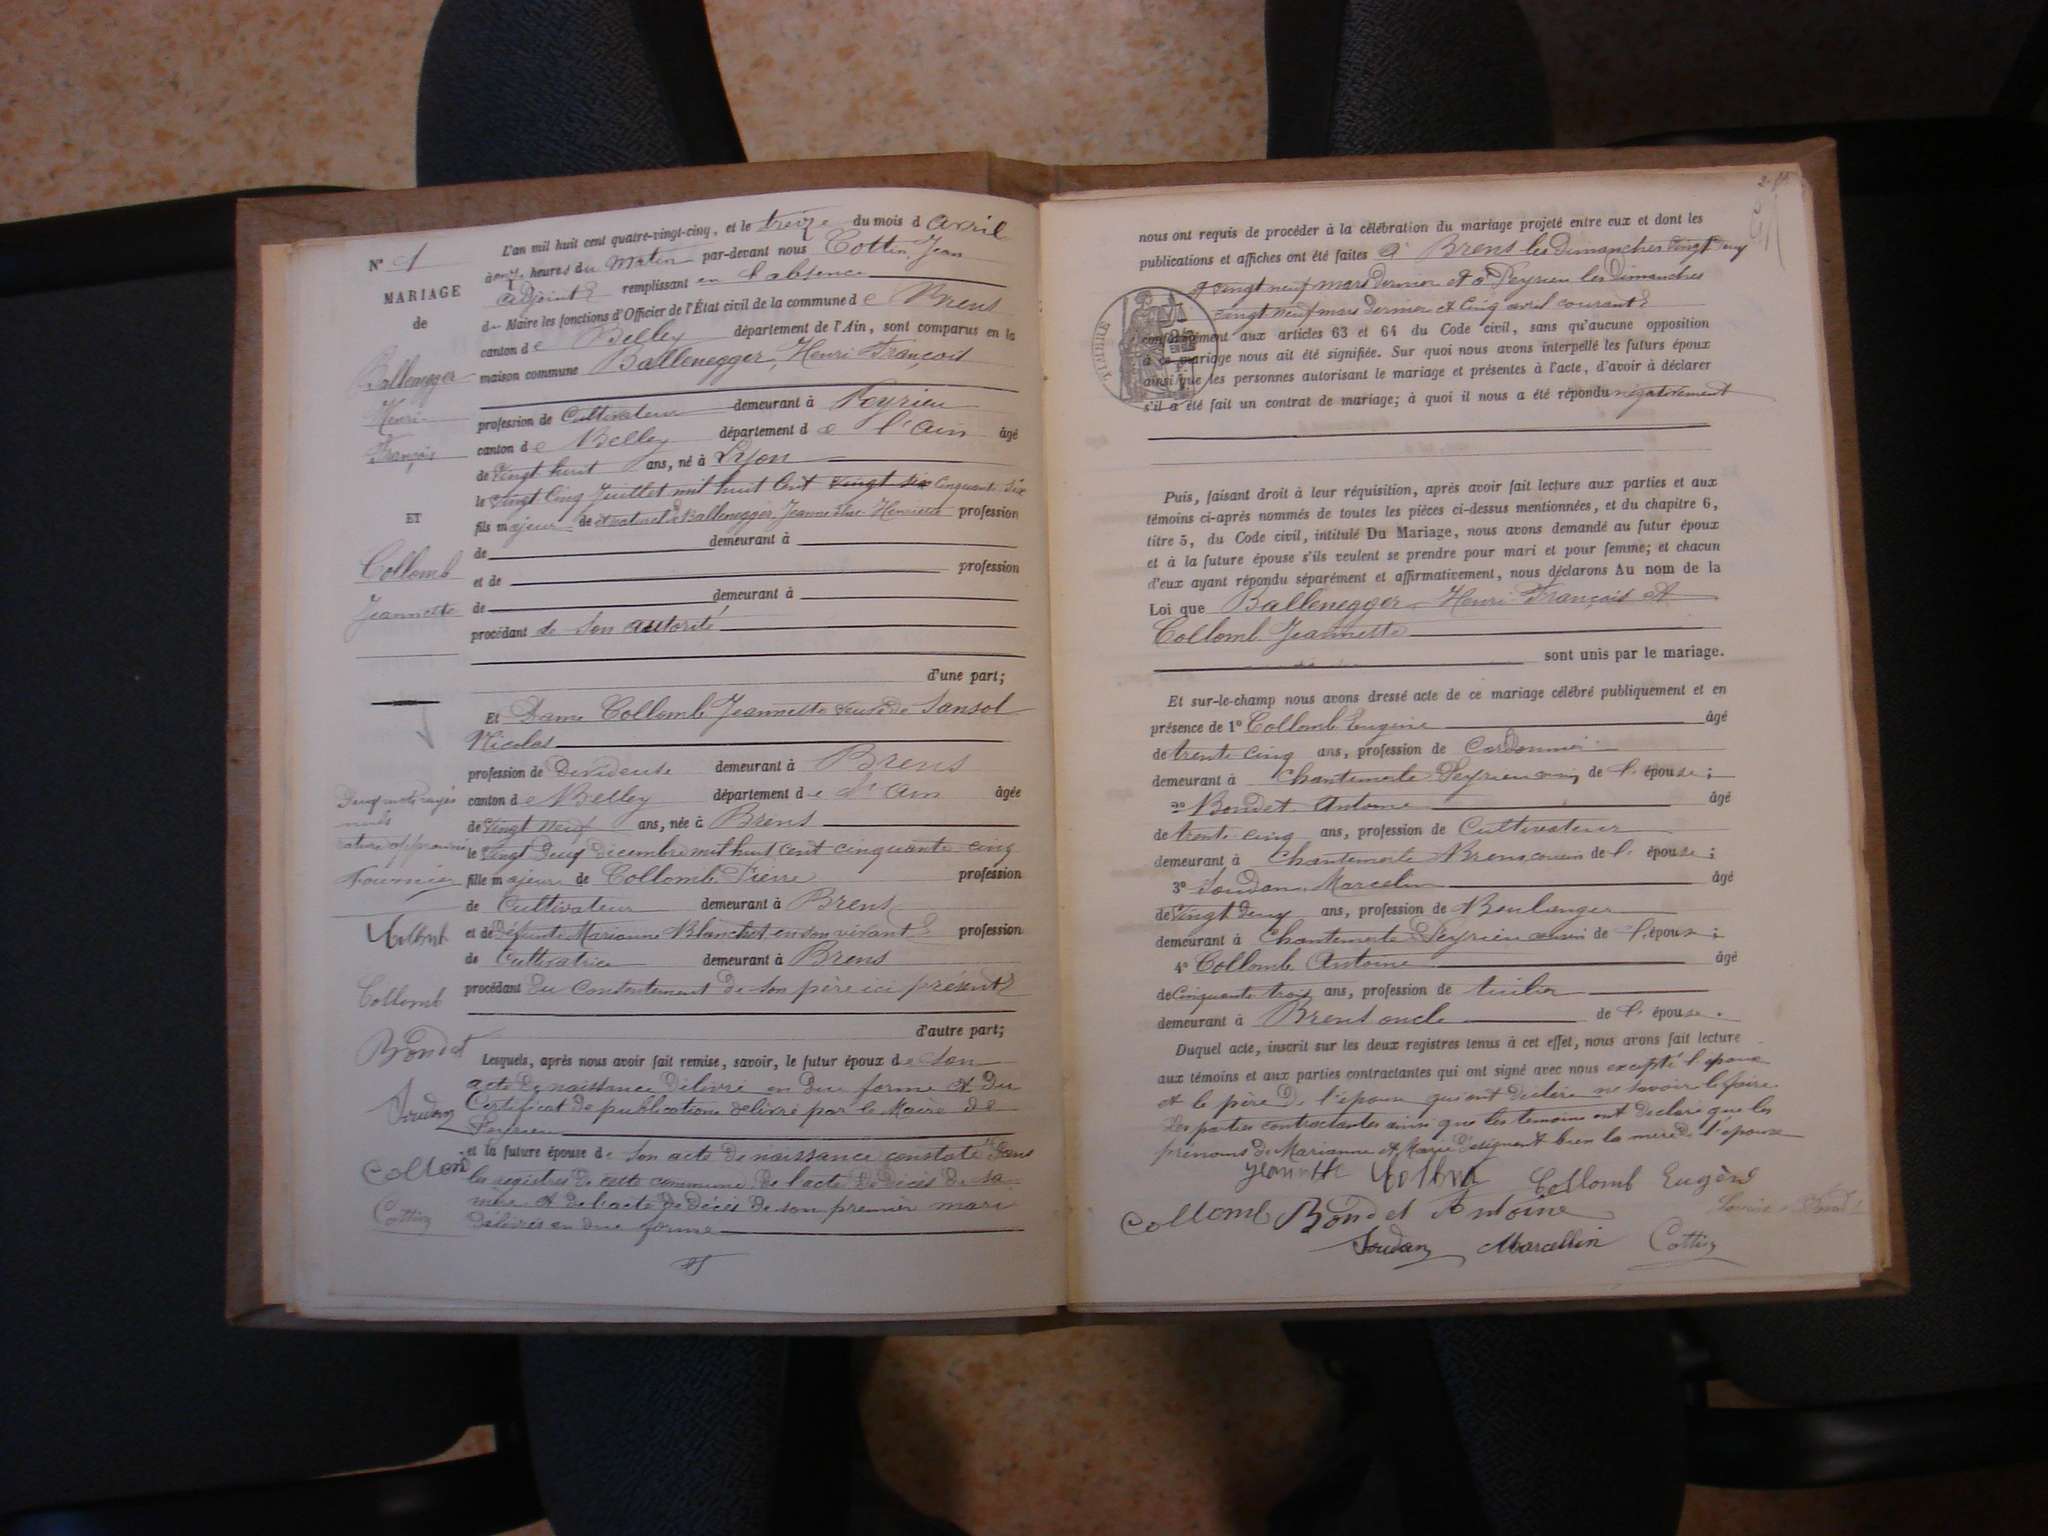 N° 1
MARIAGE
de
Ballenegger
Henri
François
ET
Collomb
Jeannette
L'an mil huit cent quatre-vingt-cinq, et le treize du mois d avril
à onze heures du Matin par-devant nous Cottin Jean
adjoint remplissant en l'absence
du Maire les fonctions d'Officier de l'État civil de la commune de Brens
canton de Belley département de l'Ain, sont comparus en la
maison commune Ballenegger, Henri François
profession de Cultivateur demeurant à Peyrieu
canton de Belley département de l'Ain âgé
de vingt huit ans, né à Lyon
le vingt cinq Juillet mil huit cent vingt six cinquante six
fils majeur de et naturel de Ballenegger Jeanne Henriette profession
de demeurant à
et de profession
de demeurant à
procédant de son autorité
d'une part;
Et Dame Collomb Jeannette veuve de Sansol
Nicolas
profession de Dévideuse demeurant à Brens
canton de Belley département de l'Ain âgée
de vingt neuf ans, née à Brens
le vingt deux décembre mil huit cent cinquante cinq
fille majeure de Collomb Pierre profession
de Cultivateur demeurant à Brens
et de défunte Marianne Blanchet en son vivant profession
de Cultivatrice demeurant à Brens
procédant du consentement de son père ici présent
d'autre part;
Lesquels, après nous avoir fait remise, savoir, le futur époux de son
acte de naissance délivré en due forme et du
Certificat de publications délivré par le Maire de
Peyrieu
et la future épouse de son acte de naissance constaté dans
les registres de cette commune, de l'acte de décès de sa
mère et de l'acte de décès de son premier mari
délivrés en due forme
Deux mots rayés
nuls
rature approuvée
Collomb
Bondet
Soudan
Collomb
Cottin
nous ont requis de procéder à la célébration du mariage projeté entre eux et dont les
publications et affiches ont été faites à Brens les dimanches vingt deux
et vingt neuf mars dernier et à Peyrieu les dimanches
vingt neuf mars dernier et cinq avril courant
conformément aux articles 63 et 64 du Code civil, sans qu'aucune opposition
à ce mariage nous ait été signifiée. Sur quoi nous avons interpellé les futurs époux
ainsi que les personnes autorisant le mariage et présentes à l'acte, d'avoir à déclarer
s'il a été fait un contrat de mariage; à quoi il nous a été répondu négativement
TIMBRE
Puis, faisant droit à leur réquisition, après avoir fait lecture aux parties et aux
témoins ci-après nommés de toutes les pièces ci-dessus mentionnées, et du chapitre 6,
titre 5, du Code civil, intitulé Du Mariage, nous avons demandé au futur époux
et à la future épouse s'ils veulent se prendre pour mari et pour femme; et chacun
d'eux ayant répondu séparément et affirmativement, nous déclarons Au nom de la
Loi que Ballenegger Henri François et
Collomb Jeannette
sont unis par le mariage.
Et sur-le-champ nous avons dressé acte de ce mariage célébré publiquement et en
présence de 1° Collomb Eugène âgé
de trente cinq ans, profession de Cordonnier
demeurant à Chantemerle Peyrieu cousin de l'épouse;
2° Bondet Antoine âgé
de trente cinq ans, profession de Cultivateur
demeurant à Chantemerle Brens cousin de l'épouse;
3° Soudan Marcelin âgé
de vingt deux ans, profession de Boulanger
demeurant à Chantemerle Peyrieu cousin de l'épouse;
4° Collomb Antoine âgé
de cinquante trois ans, profession de tuilier
demeurant à Brens oncle de l'épouse.
Duquel acte, inscrit sur les deux registres tenus à cet effet, nous avons fait lecture
aux témoins et aux parties contractantes qui ont signé avec nous excepté l'époux
et le père de l'épouse qui ont déclaré ne savoir le faire
Les parties contractantes ainsi que les témoins ont déclaré que les
prénoms de Marianne et Marie désignent bien la mère de l'épouse
Jeannette Collomb Collomb Eugène
Collomb Bondet Antoine
Soudan Marcellin Cottin